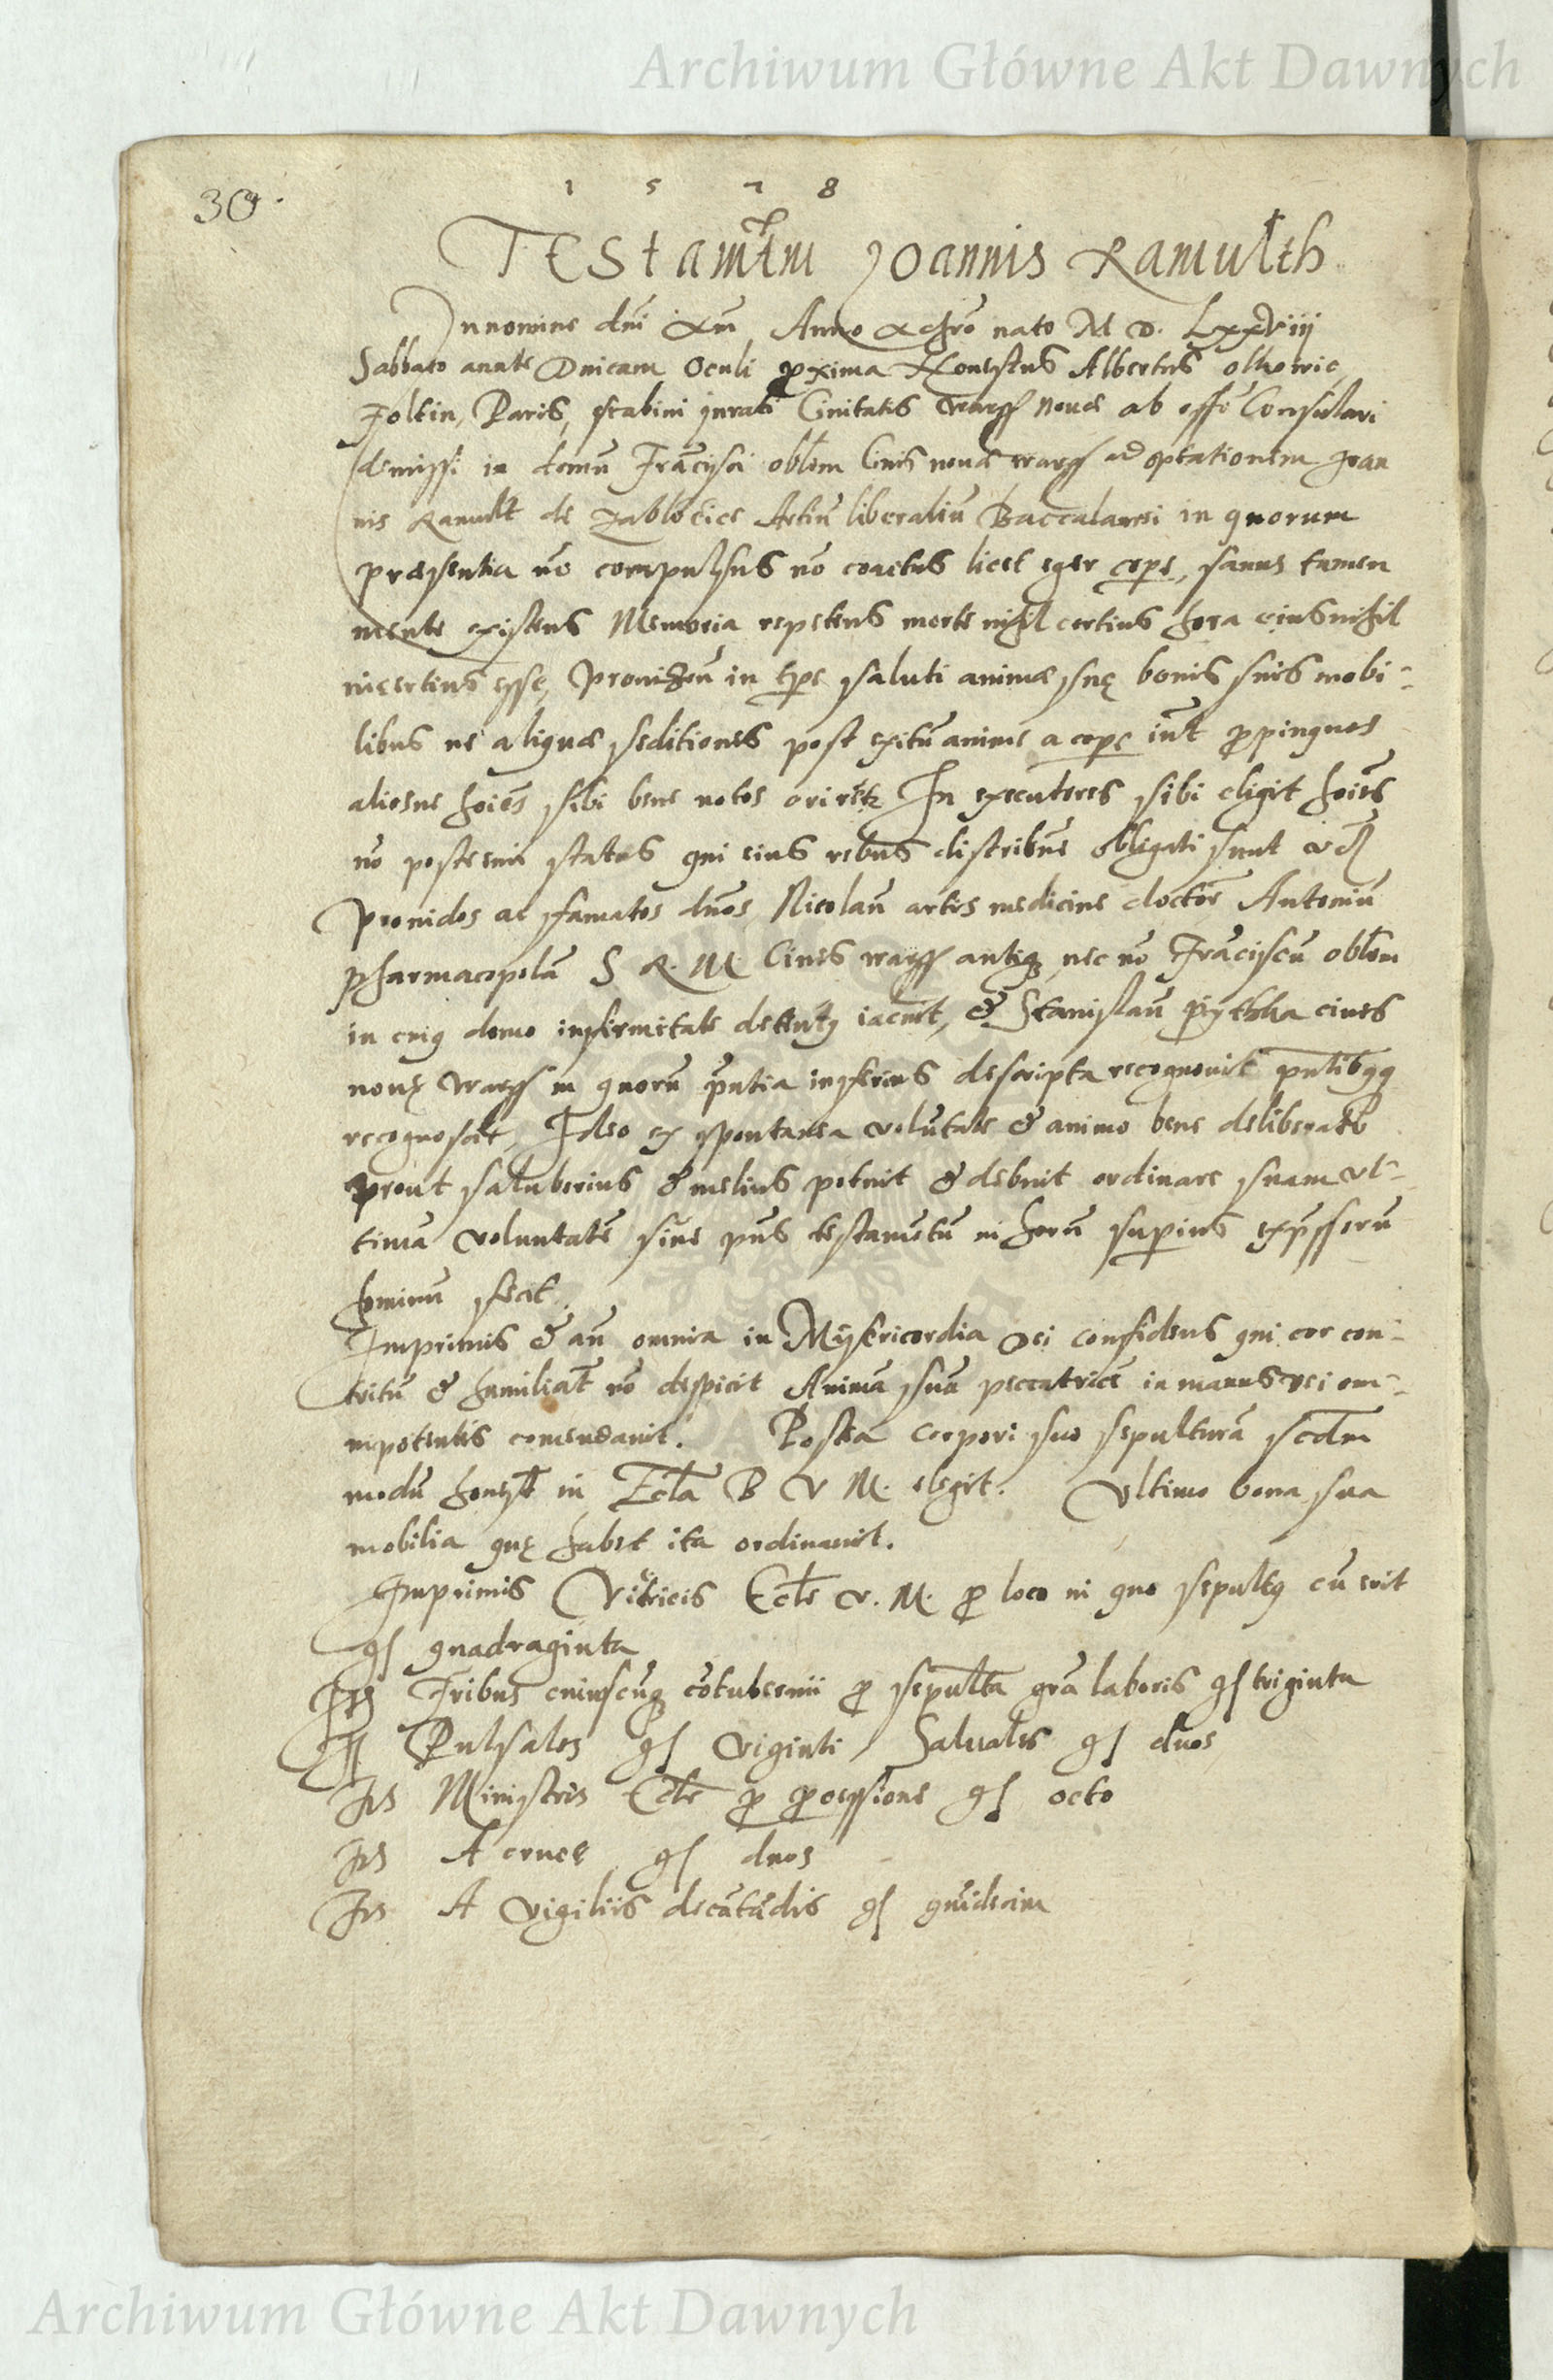 Archiwum Główne Akt Dawnych
30.
1 5 7 8
Testamẽtm Joannis Ramułth
In nomine dñi Anno nato M D. Lxxviij
Sabbato anate Dnicam Oculi proxima Honestus Albertus
Foltin, Paris, scabini jurati Civitatis Warss Novæ ab offo Consulari
demissi in domũ Frãcisci oblom Civis novæ warss ad optationem Joan
nis Ramult de Artiũ liberaliũ Baccalaurei in quorum
præsentia nõ compulsus nõ coactus licet eger corpe, sanus tamen
mente existens Memoria repetens morte nihil certius hora eius nihil
incertius esse, in tpe saluti animæ suę bonis suis mobi-
libus ne aliquæ seditiones post exitũ anime a corpe int propinquos
aliosve hoies sibi bene notos In executores sibi eligit hoies
nõ status qui eius rebus distribue obligati sunt vd
Providos ac famatos dnos Nicolaũ artis medicine doctorẽ Antoniũ
pharmacopolã S. R. M. Cives warss antiq nec nõ Frãciscũ oblom
in cuiq domo infirmitate detentq iacuit, & Stanislaũ cives
novę Warss in quorũ pntia inferius descripta recognovit pntibqq
recognoscit, Ideo ex spontanea volũtate & animo bene deliberato
prout saluberius & melius potuit & debuit ordinare suam vl-
timã voluntatẽ sive pns testamẽtũ in horũ superius expssorũ
hominũ fecit.
Imprimis & añ omnia in Mysericordia Dei confidens qui cor con-
tritũ & humiliat nõ despicit Animã suã peccatricẽ in manus Dei om-
nipotentis comendavit. Postea corpori suo sepulturã scdm
modũ honest in Ecla B V M. elegit. Ultimo bona sua
mobilia quę habet ita ordinavit.
Imprimis Vitricis Ecle V. M. p loco in quo sepultq cũ erit
gs quadraginta
Its Tribus cuiuscuq cõtubernii p sepulta gra laboris gs triginta
Its Pulsales gs viginti, Salvales gs duos
Its Ministris Ecle p pocessione gs octo
Its A cruce gs duos
Its A vigiliis decãtãdis gs quideçim
Archiwum Główne Akt Dawnych